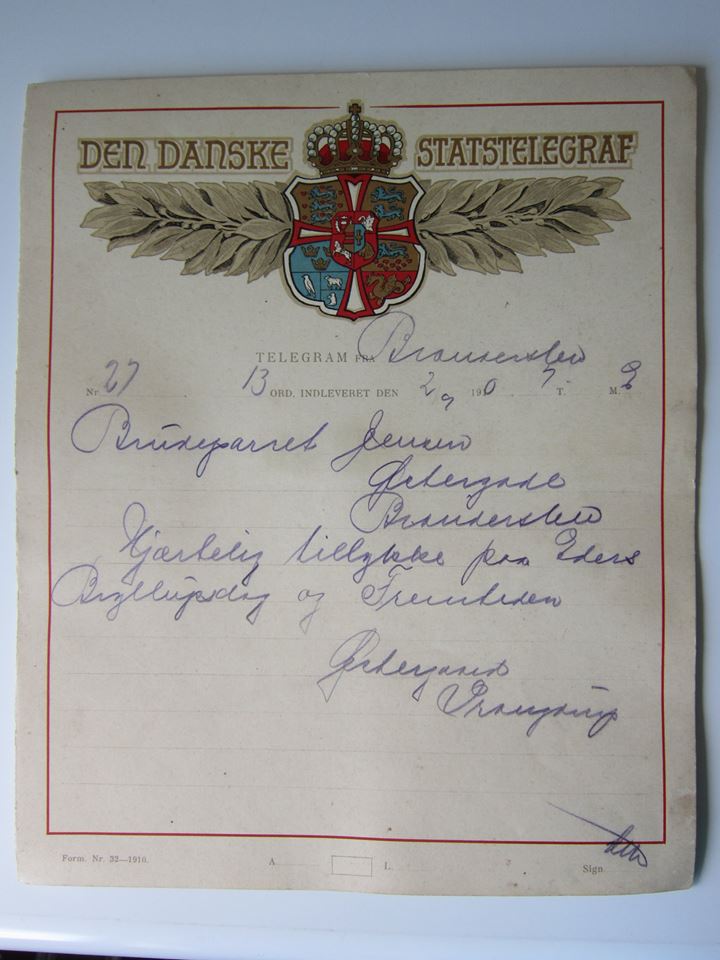 DEN DANSKE STATSTELEGRAF
TELEGRAM FRA Branderslev
Nr. 27 13 ORD. INDLEVERET DEN 2/9 19 0 7 T. M.
Brudeparret Jensen
Østergade
Branderslev
Hjærtelig tillykke paa Eders
Bryllupsdag og Fremtiden
Østergaard
Form. Nr. 32—1910.
A. L. Sign.